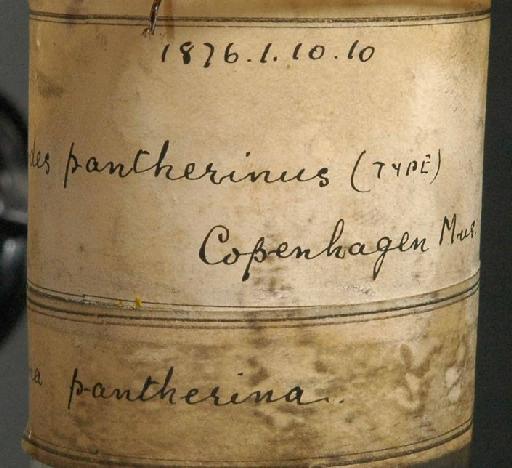 1876.1.10.10
des pantherinus (TYPE)
Copenhagen Mus
na pantherina..